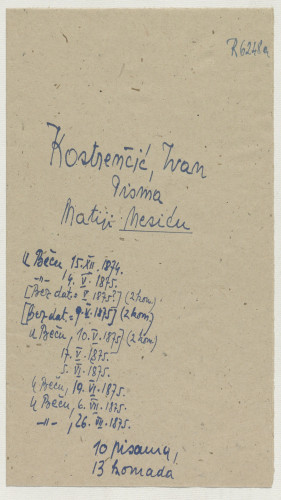 R6248a
Kostrenčić, Ivan
Pisma
Matiji Mesiću
U Beču, 15. XII. 1874.
-"- 14. V. 1875.
[Bez dat. = V. 1875?] (2 kom)
[Bez dat. = 9. V. 1875] (2 kom)
U Beču, 10. V. 1875. (2 kom)
17. V. 1875.
5. VI. 1875.
U Beču, 19. VI. 1875.
U Beču, 6. VII. 1875.
-"-, 26. VII. 1875.
10 pisama,
13 komada